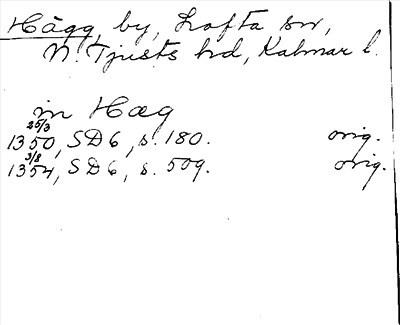 Hägg, by, Lofta sn,
N. Tjusts hd, Kalmar l.
in Hæg
25/3
1350, SD 6, s. 180. orig.
3/8
1354, SD 6, s. 509. orig.